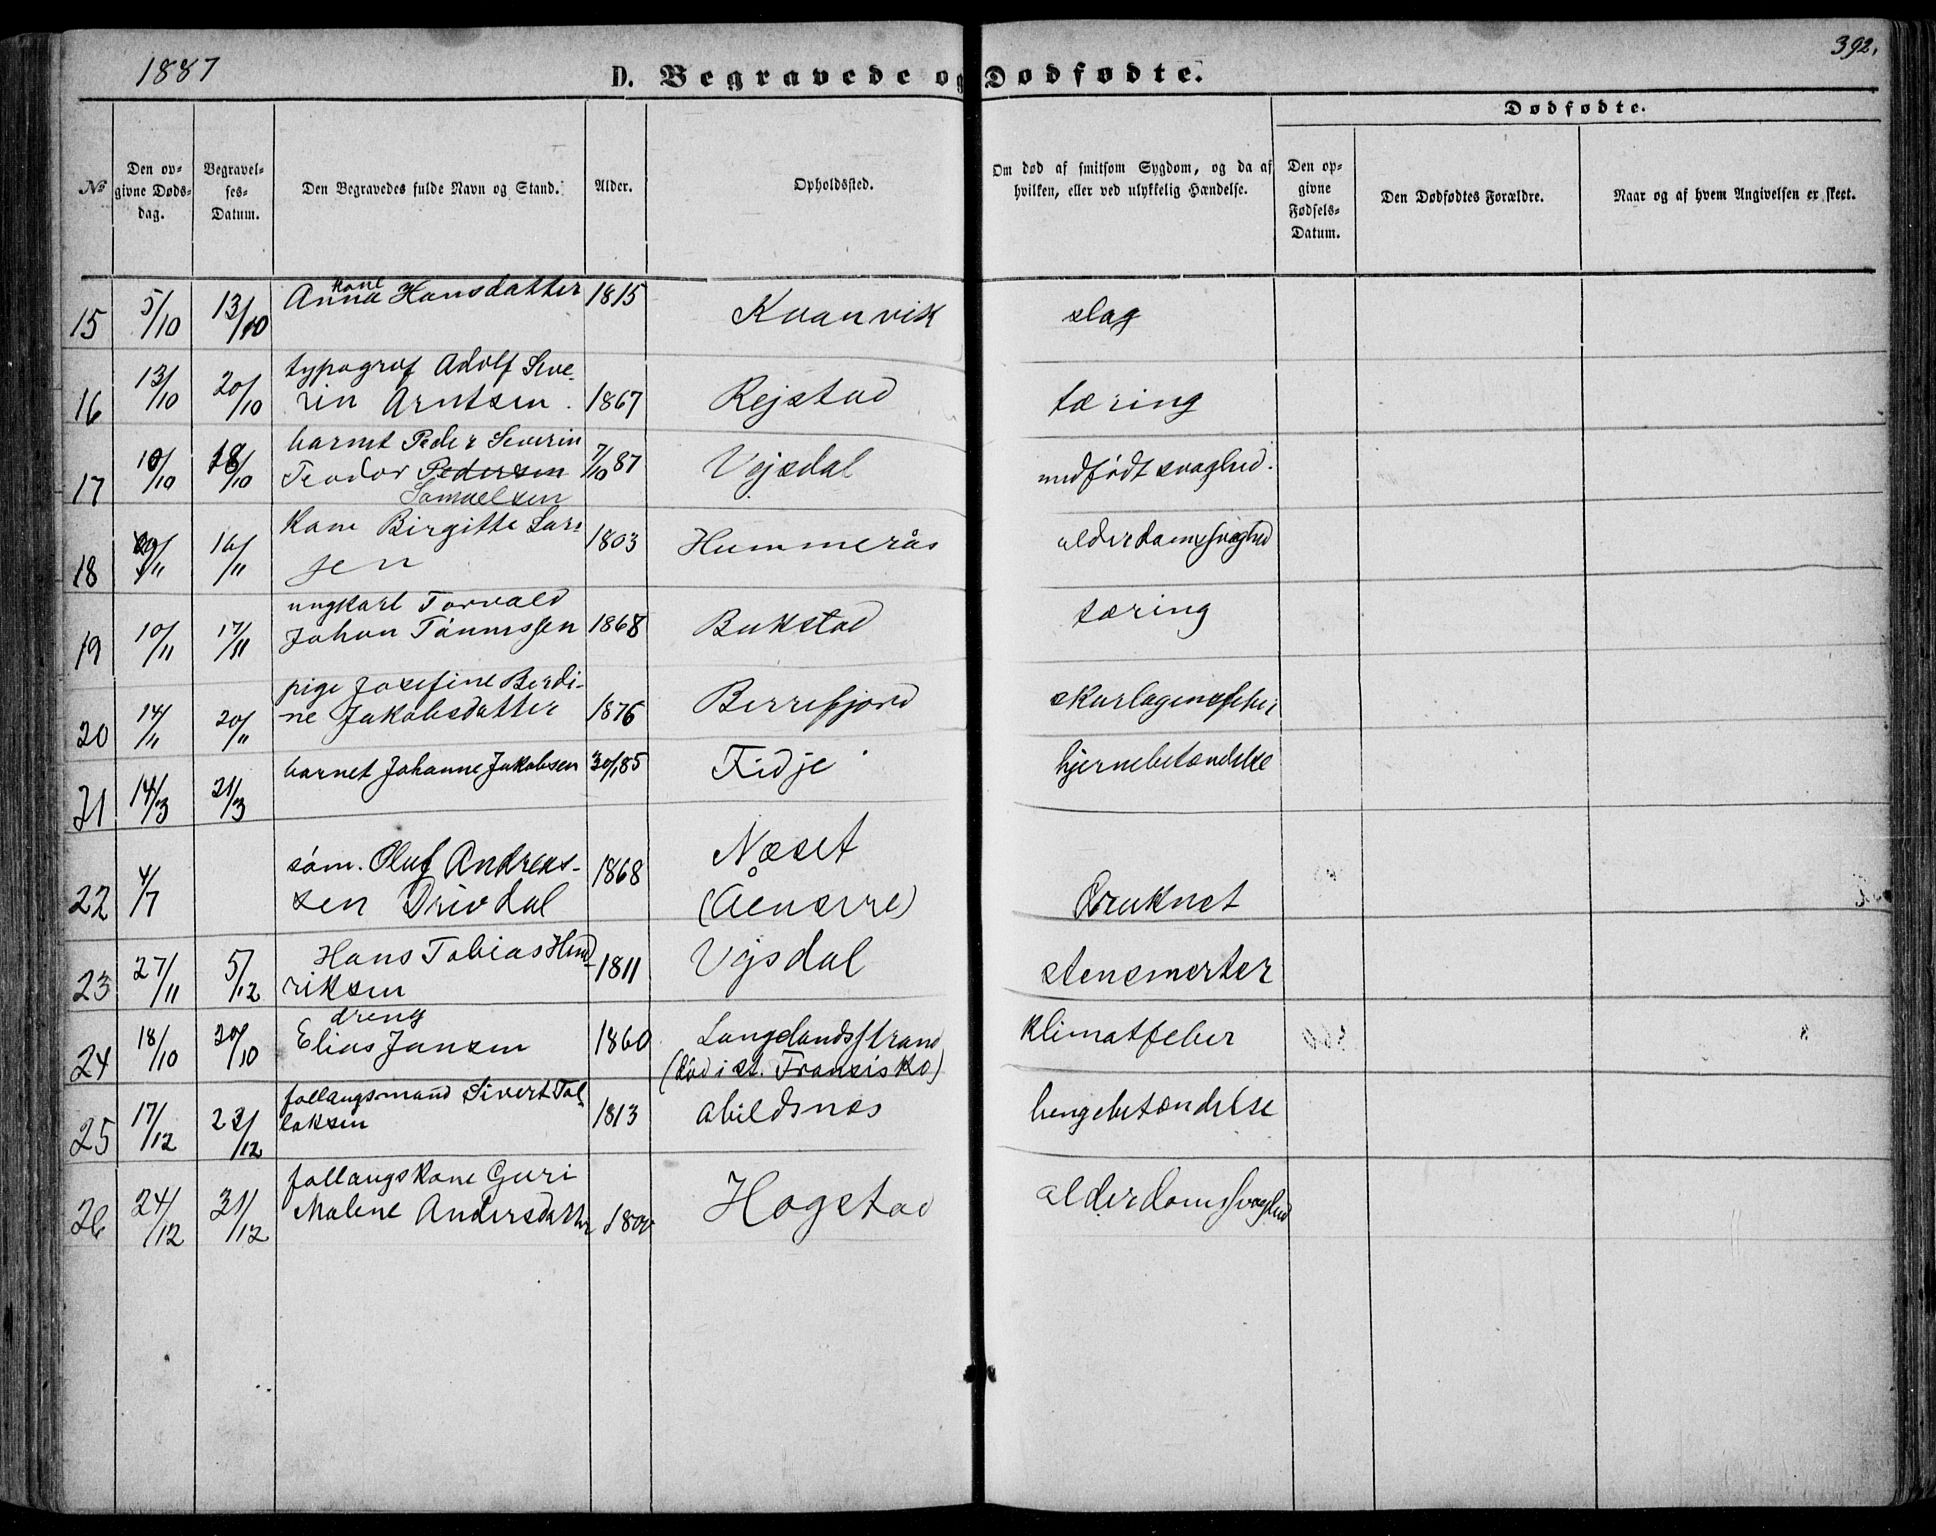 1887
392.
D. Begravede og Dødfødte.
Dødfødte.
No
Den opgivne Dødsdag.
Begravelses-Datum.
Den Begravedes fulde Navn og Stand.
Alder.
Opholdssted.
Om død af smitsom Sygdom, og da af hvilken, eller ved ulykkelig Hændelse.
Den opgivne Fødsels-Datum.
Den Dødfødtes Forældre.
Naar og af hvem Angivelsen er skeet.
kone
15 5/10 13/10 Anna Hansdatter 1815 Kvanvik slag
typograf Adolf Seve-
16 13/10 20/10 rin Arntsen. 1867 Rejstad tæring
barnet Peder Severin
17 10/10 18/10 Teodor Pedersen 7/10 87 Vejsdal medfødt svaghed.
Samuelsen
Kone Birgitte Lar-
18 /11 16/11 sen 1803 Hummerås alderdomssvaghed
ungkarl Torvald
19 10/11 17/11 Johan Tønnessen 1868 Bukstad tæring
pige Josefine Berdi-
20 14/11 20/11 ne Jakobsdatter 1876 Berrefjord skarlagensfeber
21 14/3 21/3 barnet Johanne Jakobsen 30/1 85 Fidje hjernebetændelse
søm. Oluf Andreas- Næset
22 4/7 sen Drivdal 1868 (Åensire) Druknet
Hans Tobias Hend
23 27/11 5/12 riksen 1811 Vejsdal stensmerter
dreng
24 18/10 20/10 Elias Jansen 1860 Langelandsstrand klimatfeber
(død i st. Fransisko)
follaugsmand Sivert Tol-
25 17/12 23/12 laksen 1813 abildsnes lungebetændelse
follaugskone Guri
26 24/12 31/12 Malene Andersdatter 1800 Hogstad alderdomssvaghed